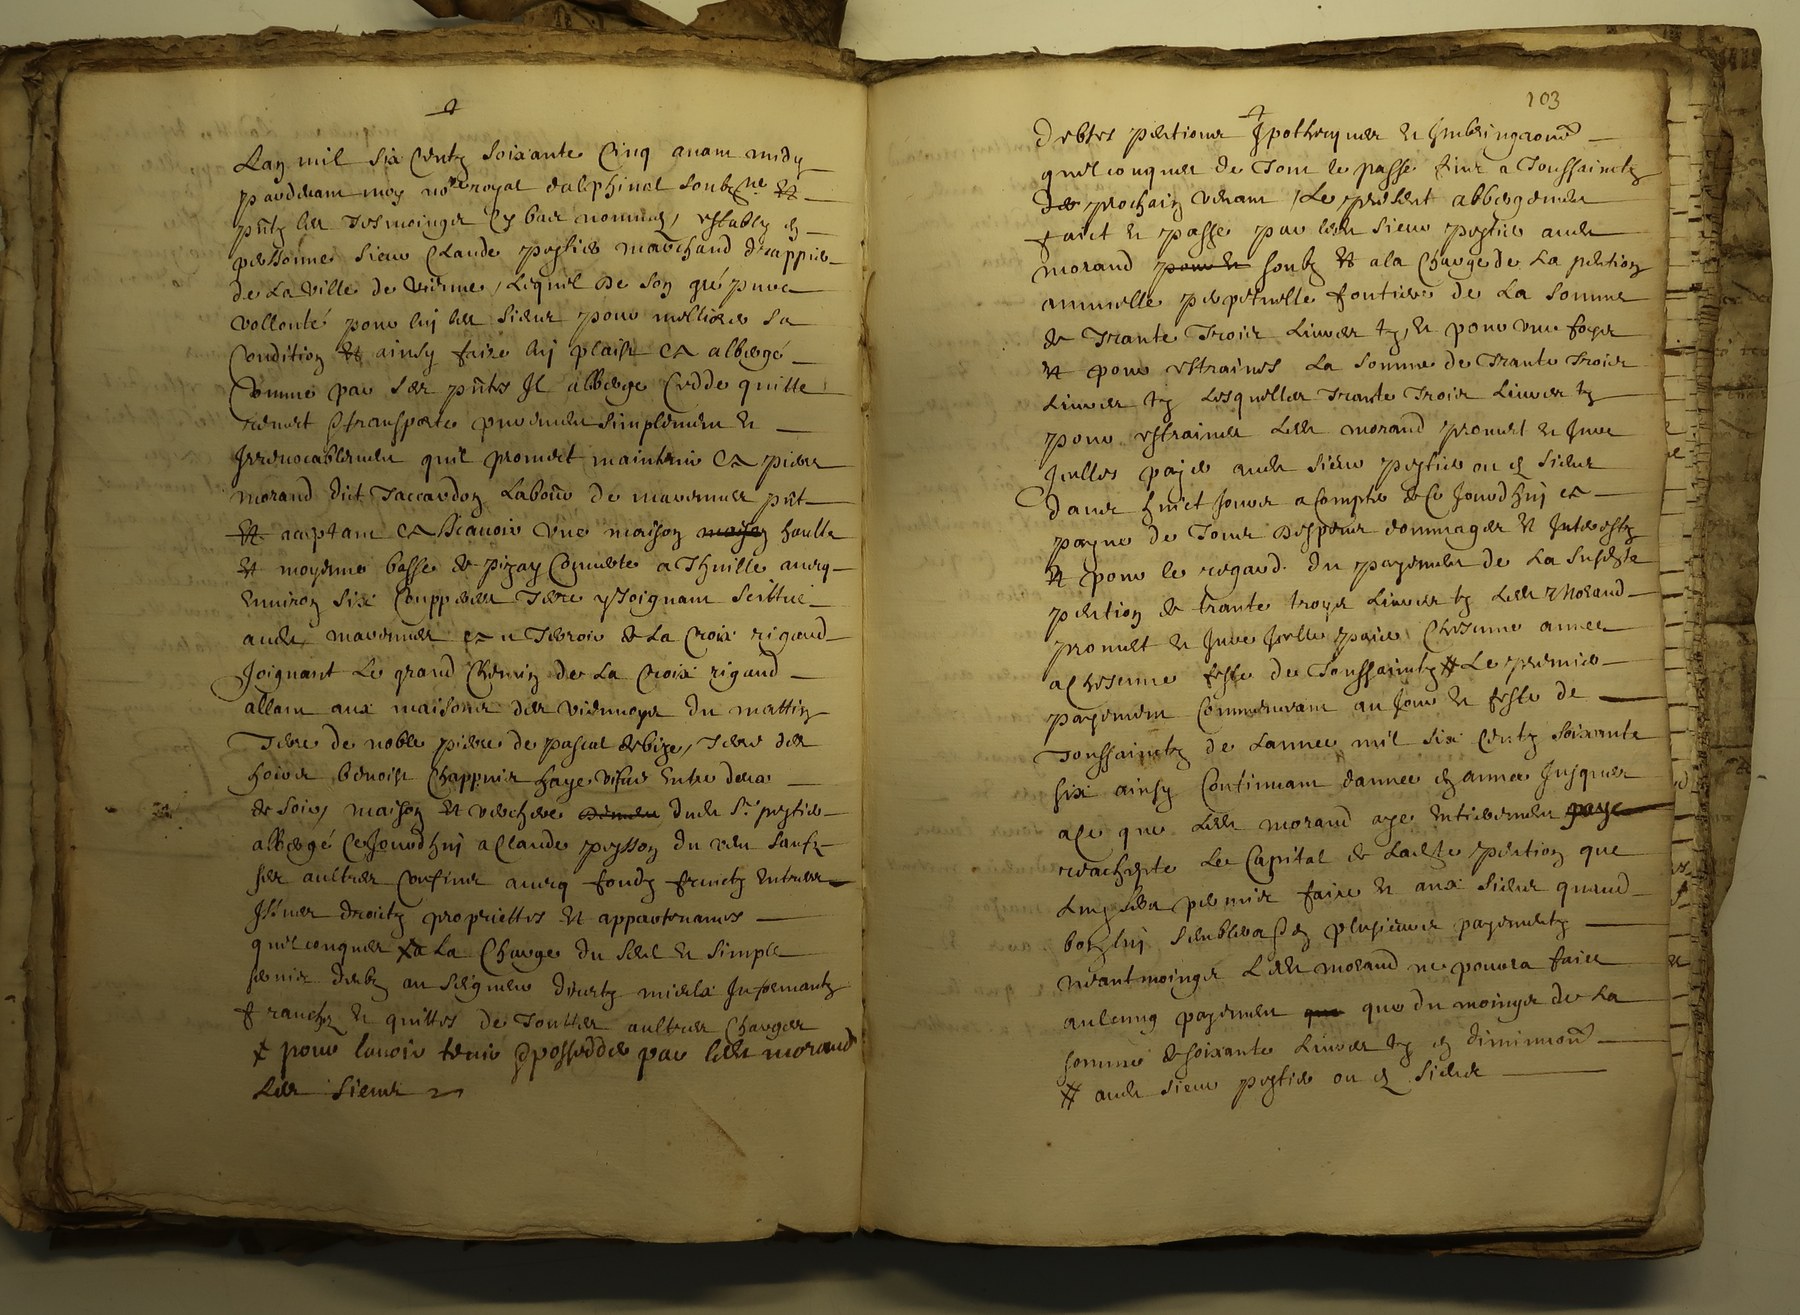 Lan mil six centz soixante cinq avant midy
pardevant moy no.re royal dalphinal soubz.ne et
p.ntz les tesmoings cy bas nommes, estably en
personne sieur Claude pestier marchand drappier
de la ville de vienne, lequel de son gré pure
vollonté pour luy les sieurs pour melliorer sa
condition et ainsy faire luy plaist a albergé
comme par ses p.ntes Il alberge cedde quitte
remet et transporte purement simplement et
Irrevocablement quil promet maintenir a pierre
morand dict Jaccardon labo.r de mavernier p.nt
et aceptant a scavoir une maison maison haulte
et moyenne basse de pizay couverte a Thuille avecq
environ six couppees Terre y Joignant scittué
aud. mavernier et Terroir de la Croix rigaud
Joignant le grand chemin de la Croix rigaud
allant aux maisons des viennoys du mattin
Terre de noble pierre de pascal de bize, Terre des
hoirs benoist chappuis haye visve entre deux
de soir, maison et verchere dud. S.r pestier
albergé cejourdhuy a Claude peysson du vent saufz
ses aultres confins avecq fondz fruictz entrees
Issues droictz propriettes et appartenances
quelconques a la charge du seel et simple
servis deubz au seigneur directz mieulx Informantz
franchz et quittes de Touttes aultres charges
pour lavoir tenir et possedder par led. morand
les siens
103
debtes pentions Ypothecques et Imbringaon.s
quelconques de Tout le passe Jusques a Toussainctz
prochain venant, le present albergement
faict et passe par led. sieur pestier aud.
morand pour et soubz et a la charge de la pention
annuelle perpetuelle fontiere de la somme
de Trante Trois Livres tz, et pour une foys
et pour estraines la somme de Trante Trois
Livres tz lesquelles Trante Trois Livres tz
pour estraines led. morand promet et Jure
Icelles payer aud. sieur pestier ou es siens
dans huict jours a compter de ce Jourdhuy a
peyne de Tous despens dommages et Interestz
et pour le regard du payement de la susd.te
pention de trante troys Livres tz led. Morand
promet et Jure Icelle paier chescune annee
a chescune feste de Toussainctz # le premier
payement commencant au Jour et feste de
Toussainctz de lannee mil six centz soixante
six ainsy continuant dannee en annee Jusques
a ce que led. morand aye entierement paye
reachepte le capital de lad.te pention que
luy sera permis faire et aux siens quand
bon luy semblera en plusieurs payementz
neantmoings led. morand ne pourra faire
aulcung payement que que du moings de la
somme de soixante Livres tz en diminuon.
# aud. sieur pestier ou es siens